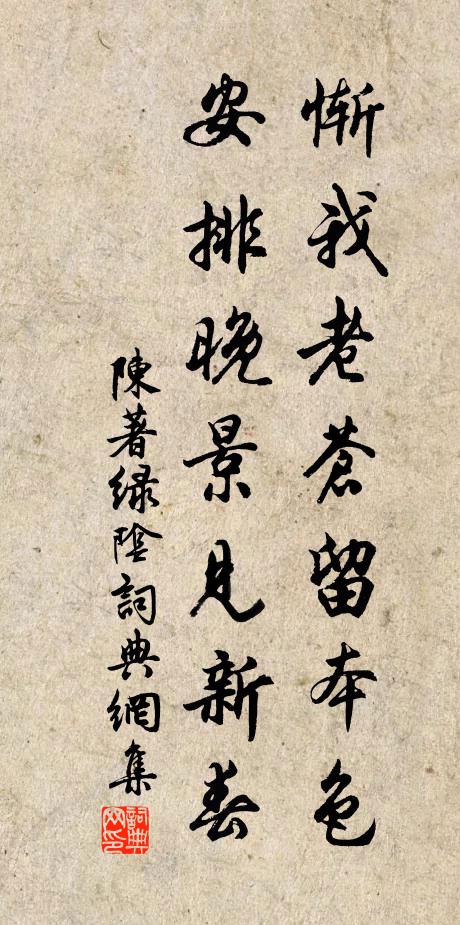 慚我老蒼留本色
安排晚景見新春
陳著綠陰詞典網集
詞典
网印